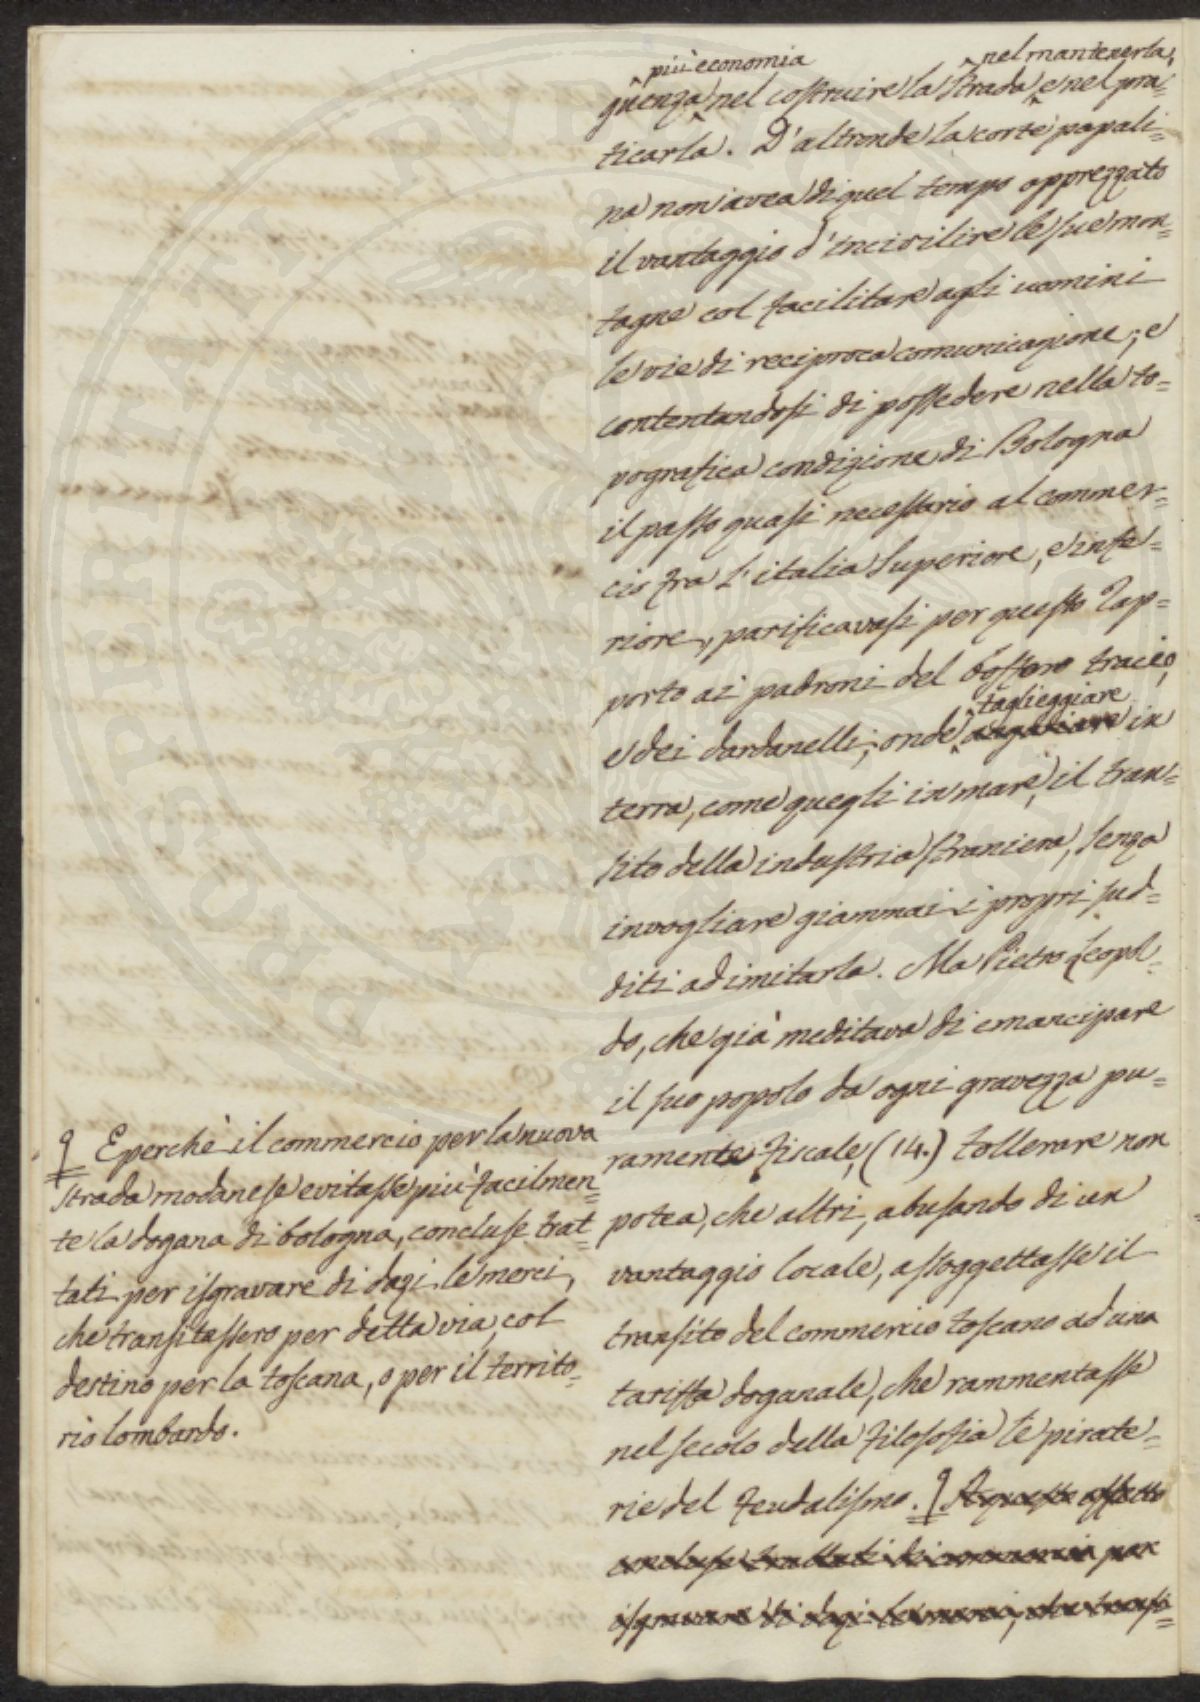 più economia nel mantenerla,
guenza nel costruire la strada e nel pra=
ticarla. D'altronde la corte papali=
na non avea di quel tempo apprezzato
il vantaggio d'incivilire le sue mon=
tagne col facilitare agli uomini
le vie di reciproca comunicazione; e
contentandosi di possedere nella to=
pografica condizione di Bologna
il passo quasi necessario al commer=
cio fra l'italia superiore, e infe=
riore, parificavasi per questo rap=
porto ai padroni del bosforo tracio,
taglieggiare
e dei dardanelli; onde angariare in
terra, come quegli in mare, il tran=
sito della industria straniera, senza
invogliare giammai i propri sud=
diti ad imitarla. Ma Pietro Leopol=
do, che già meditava di emancipare
il suo popolo da ogni gravezza pu=
ramente fiscale, (14.) tollerare non
potea, che altri, abusando di un
vantaggio locale, assoggettasse il
transito del commercio toscano ad una
tariffa doganale, che rammentasse
nel secolo della filosofia le pirate=
rie del feudalismo. A questo effetto
concluse trattati di commercio per
isgravare di dazi le merci, che transi=
E perchè il commercio per la nuova
strada modanese evitasse più facilmen=
te la dogana di bologna, concluse trat=
tati per isgravare di dazi le merci,
che transitassero per detta via, col
destino per la toscana, o per il territo=
rio lombardo.